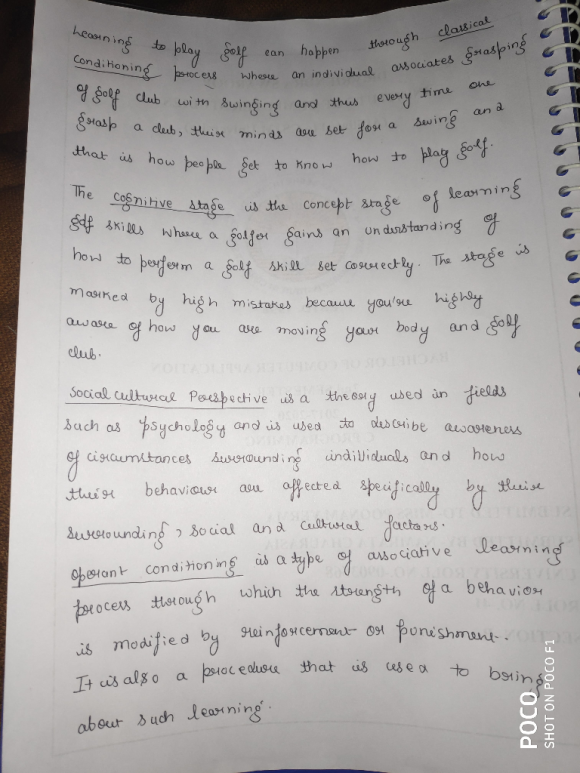 Learning to play golf can happen through classical
Conditioning process where an individual associates grasping
of golf club with swinging and thus every time one
grasp a club, their minds are set for a swing and
that is how people get to know how to play golf.
The cognitive stage is the concept stage of learning
golf skills where a golfer gains an understanding of
how to perform a golf skill set correctly. The stage is
marked by high mistakes because you're highly
aware of how you are moving your body and golf
club.
Social cultural Perspective is a theory used in fields
such as Psychology and is used to describe awareness
of circumstances surrounding individuals and how
their behaviour are affected specifically by their
surrounding, social and cultural factors.
operant conditioning is a type of associative learning
process through which the strength of a behavior
is modified by reinforcement or punishment.
It is also a procedure that is used to bring
about such learning.
POCO
SHOT ON POCO F1